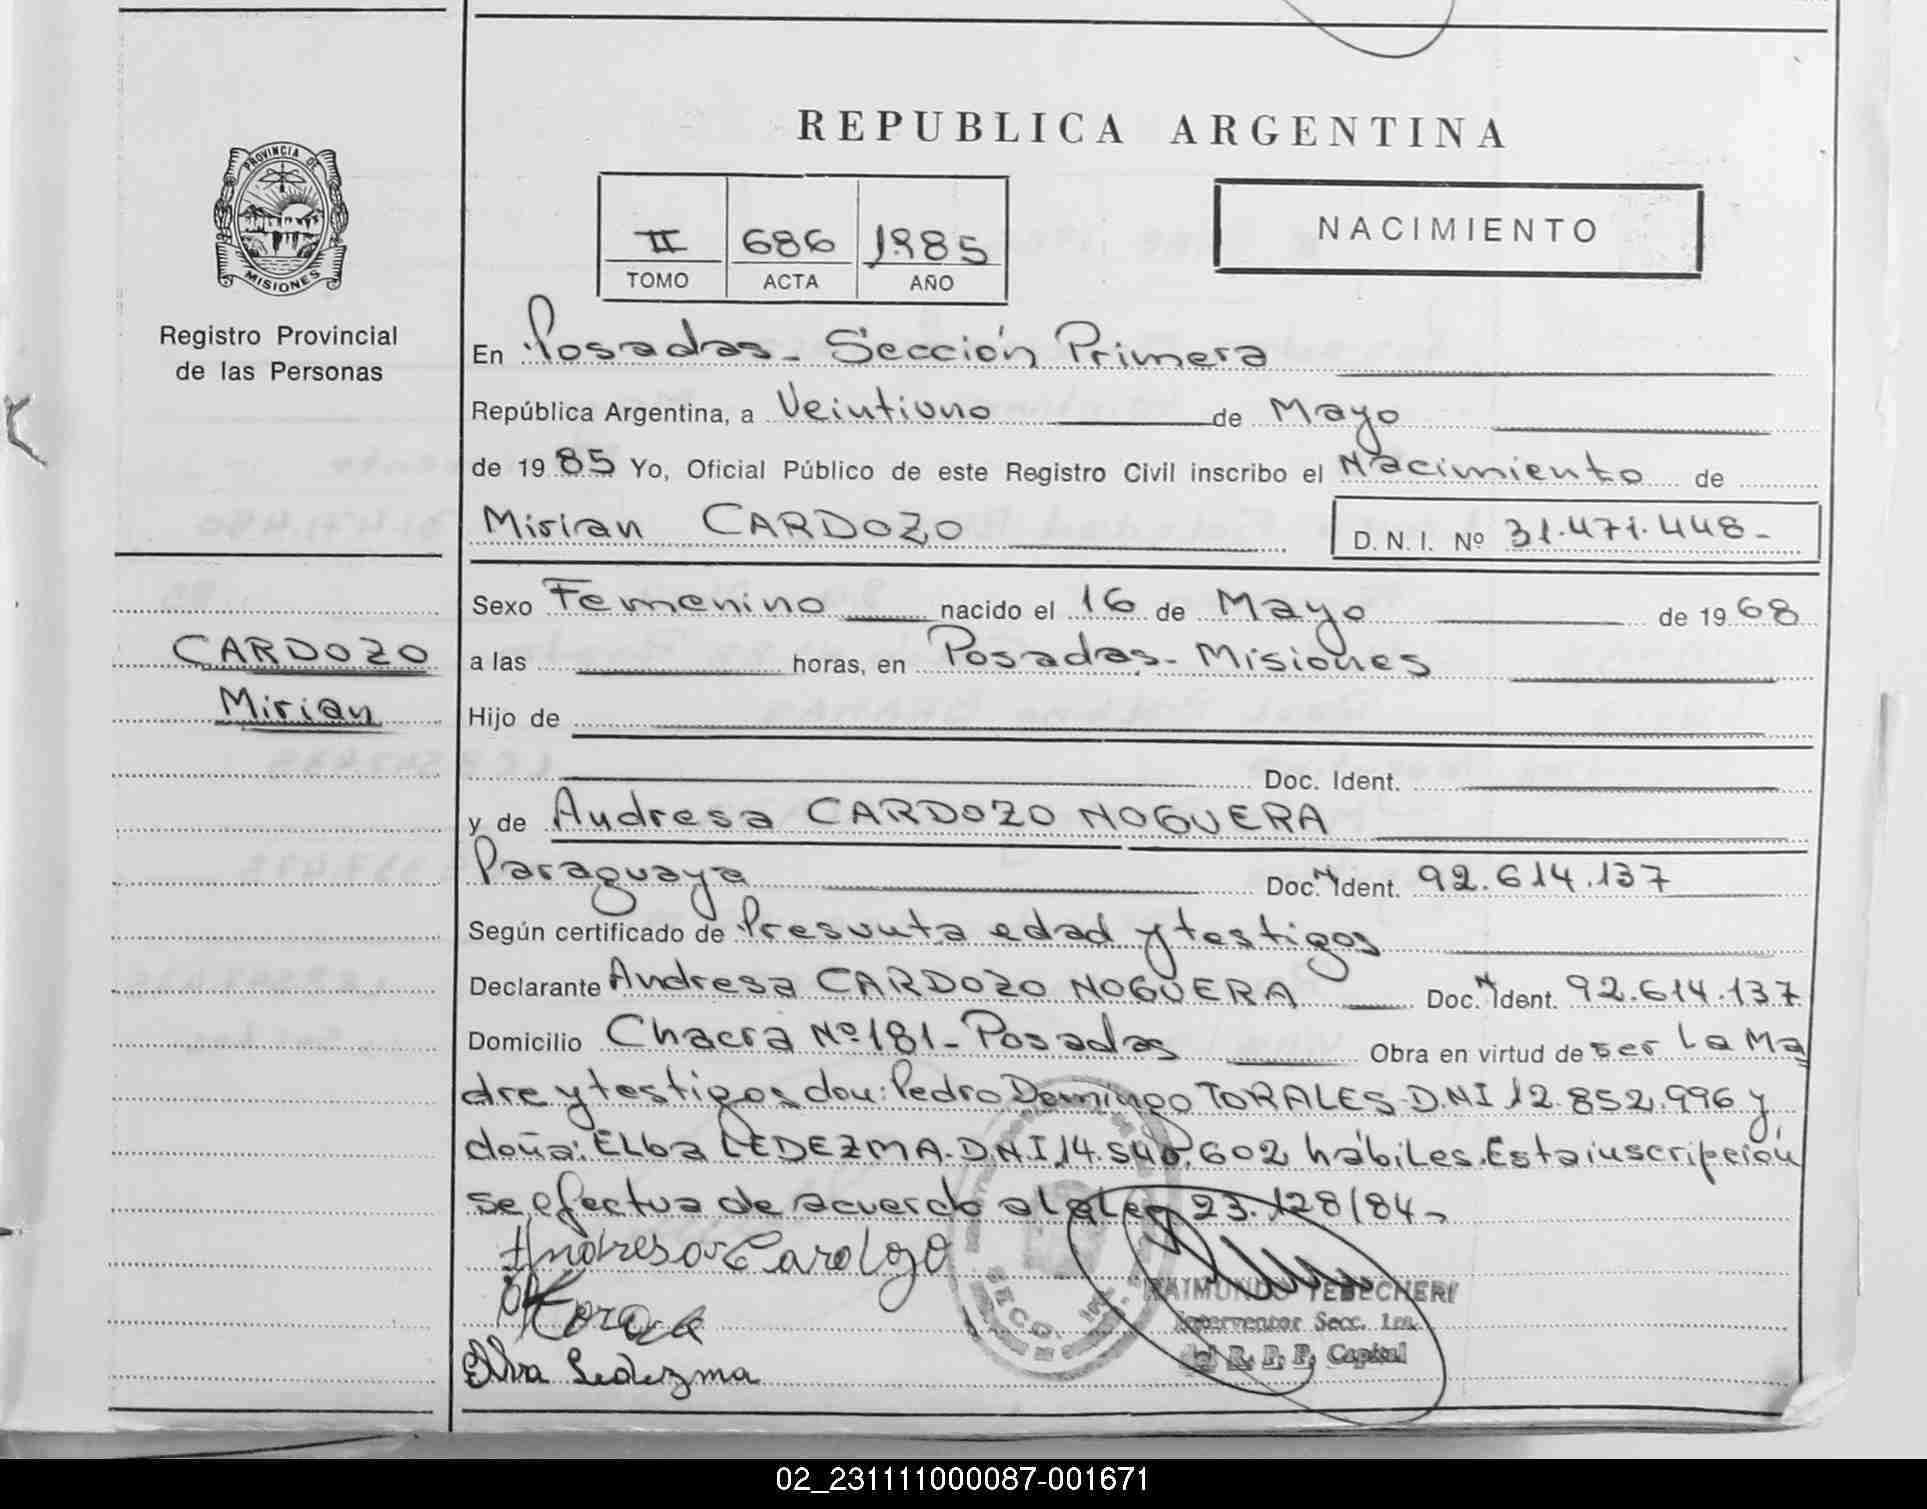 REPUBLICA ARGENTINA
PROVINCIA DE
MISIONES
Registro Provincial
de las Personas
II 686 1985
TOMO ACTA AÑO
NACIMIENTO
En Posadas - Sección Primera
República Argentina, a Veintiuno de Mayo
de 19 85 Yo, Oficial Público de este Registro Civil inscribo el Nacimiento de
Mirian CARDOZO D.N.I. Nº 31.471.448-
Sexo Femenino nacido el 16 de Mayo de 19 68
CARDOZO
Mirian
a las horas, en Posadas - Misiones
Hijo de
Doc. Ident.
y de Andresa CARDOZO NOGUERA
Paraguaya Doc. Ident. 92.614.137
Según certificado de Presunta edad y testigos
Declarante Andresa CARDOZO NOGUERA Doc. Ident. 92.614.137
Domicilio Chacra Nº 181 - Posadas Obra en virtud de ser la Ma
dre y testigos don: Pedro Domingo TORALES D.N.I 12.852.996 y
doña: Elba LEDEZMA. D.N.I. 14.540.602 hábiles. Esta inscripción
se efectua de acuerdo al ley 23.128/84-
Andresa Cardozo
Elva Ledezma
RAIMUNDO TEBECHERI
Interventor Secc. 1ra.
del R. P. P. Capital
02_231111000087-001671